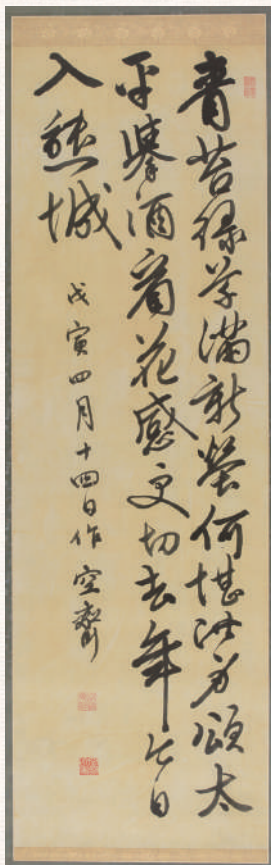 青苔緑草滿新塋何堪此身頌太
平擧酒看花感更切去年今日
入熊城
戊寅四月十四日作 空齋